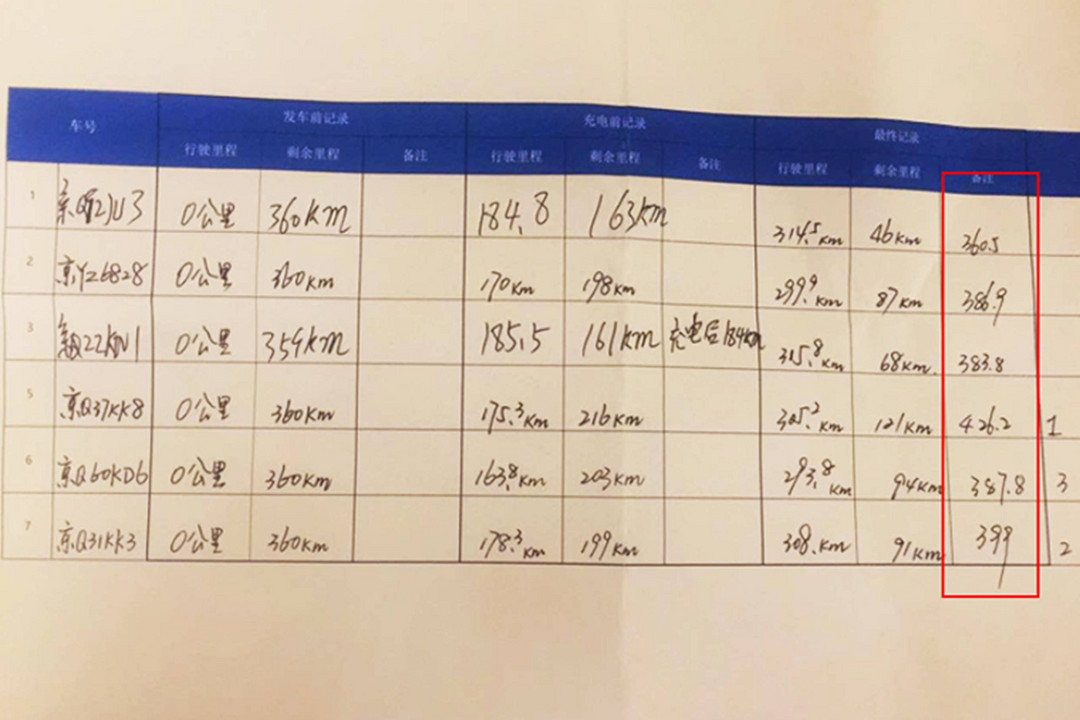 车号 发车前记录 充电前记录 最终记录
行驶里程 剩余里程 备注 行驶里程 剩余里程 备注 行驶里程 剩余里程 备注
1 0公里 360km 184.8 163km 314.5km 46km 360.5
2 京Y26828 0公里 360km 170km 198km 299.9km 87km 386.9
3 0公里 359km 185.5 161km 充电后184km 315.8km 68km 383.8
5 京Q37KK8 0公里 360km 175.3km 216km 305.2km 121km 426.2 1
6 京Q60KD6 0公里 360km 163.8km 203km 293.8km 94km 387.8 3
7 京Q31KK3 0公里 360km 178.3km 199km 308.km 91km 399 2